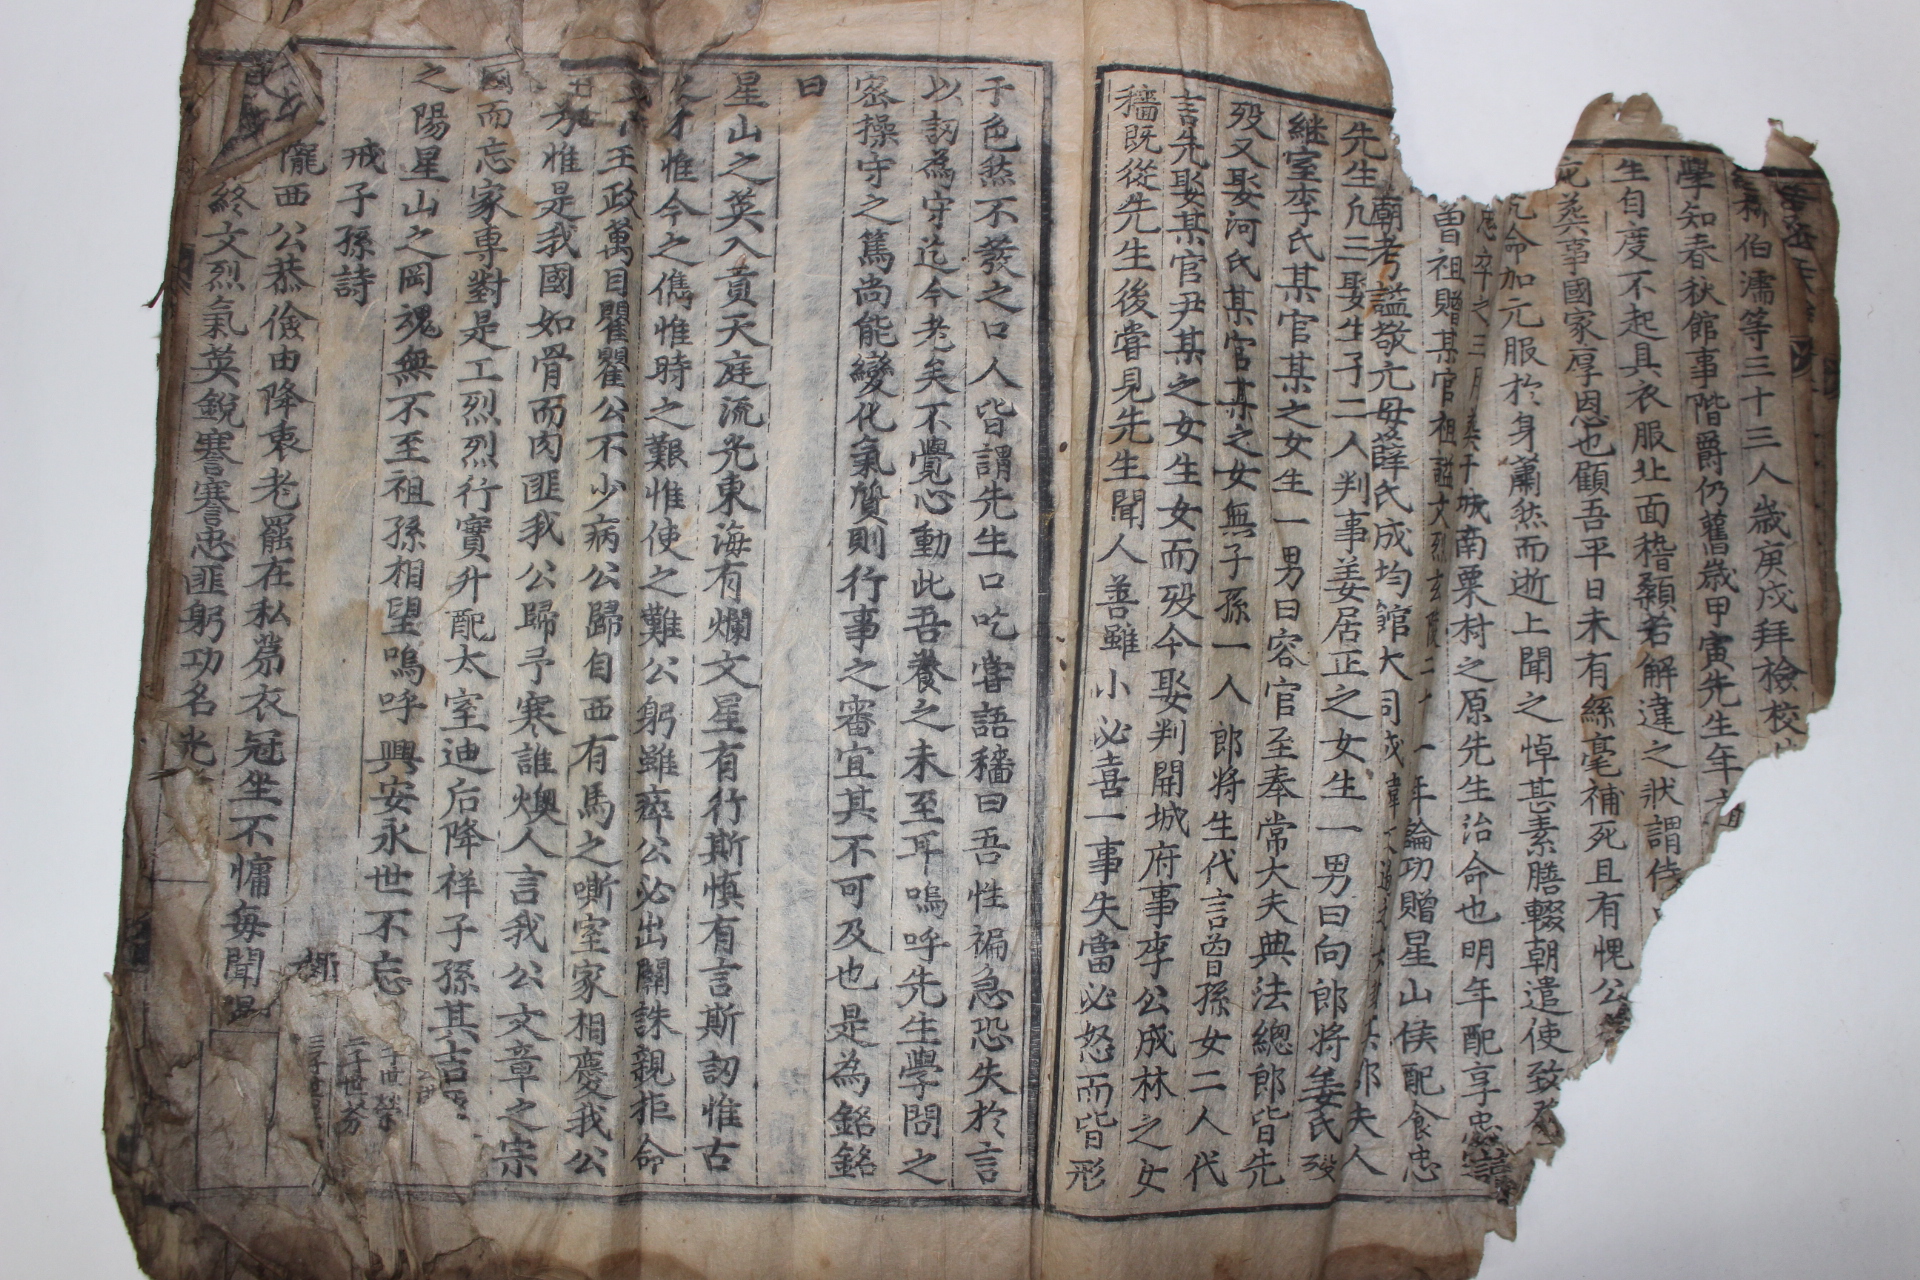 新伯濡等三十三人歲庚戌拜檢校
學知春秋館事階爵仍舊歲甲寅先生年
生自度不起具衣服北面稽顙若解違之狀謂侍
葬事國家厚恩也顧吾平日未有絲毫補死且有愧公
命加元服於身肅然而逝上聞之悼甚素膳輟朝遣使致
卒之三月葬于城南栗村之原先生治命也明年配享忠
曾祖贈某官祖諡文烈
年論功贈星山侯配食忠
廟考諡敬元母薛氏成均館大司成
夫人
先生凡三娶生子二人判事姜居正之女生一男曰向郎將姜氏歿
継室李氏某官某之女生一男曰容官至奉常大夫典法總郎皆先
歿又娶河氏某官某之女無子孫一人郎將生代言曾孫女二人代
言先娶某官尹某之女生女而歿今娶判開城府事李公成林之女
穡既從先生後嘗見先生聞人善雖小必喜一事失當必怒而皆形
于色然不發之口人皆謂先生口吃嘗語穡曰吾性褊急恐失於言
以訒為守迄今老矣不覺心動此吾養之未至耳嗚呼先生學問之
密操守之篤尚能變化氣質則行事之審宜其不可及也是為銘銘
曰
星山之英入貢天庭流光東海有爛文星有行斯慎有言斯訒惟古
之才惟今之儁惟時之艱惟使之難公躬雖瘁公必出關誅親拒命
王政萬目瞿瞿公不少病公歸自西有馬之嘶室家相慶我公
惟是我國如骨而肉匪我公歸予寒誰燠人言我公文章之宗
國而忘家專對是工烈烈行實升配太室迪后降祥子孫其吉
之陽星山之岡魂無不至祖孫相望嗚呼興安永世不忘
戒子孫詩
隴西公恭儉由降衷老罷在私第衣冠坐不慵每聞
終文烈氣英銳謇謇忠匪躬功名光